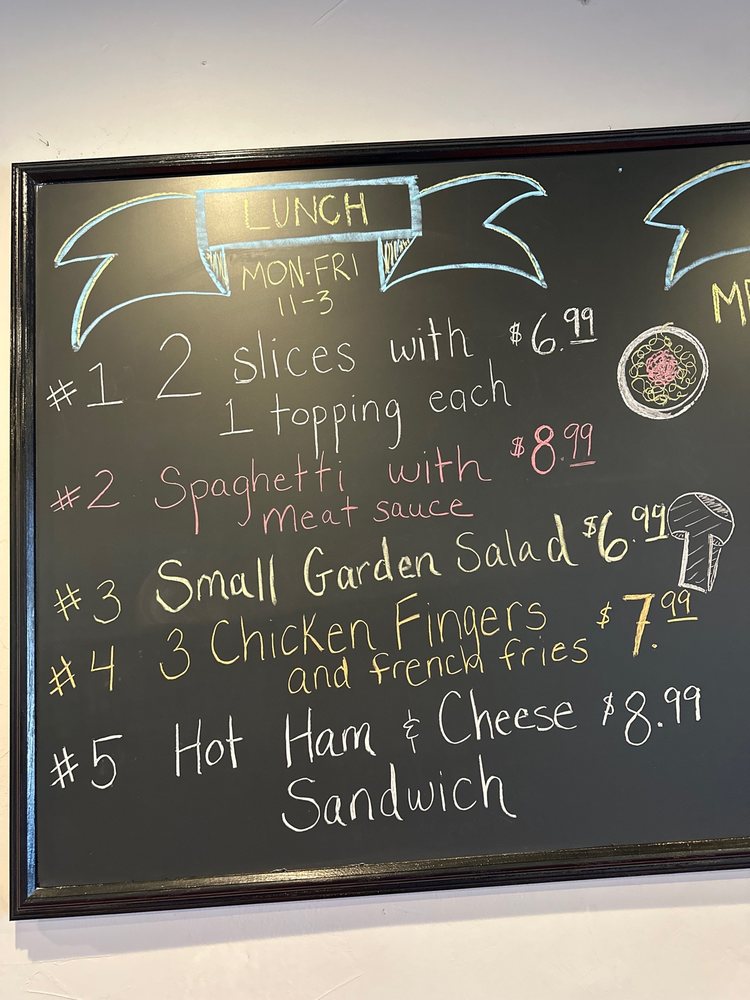 LUNCH
MON-FRI
11-3
#1 2 slices with $6.99
1 topping each
#2 Spaghetti with $8.99
meat sauce
#3 Small Garden Salad $6.99
#4 3 Chicken Fingers $7.99
and french fries
#5 Hot Ham & Cheese $8.99
Sandwich